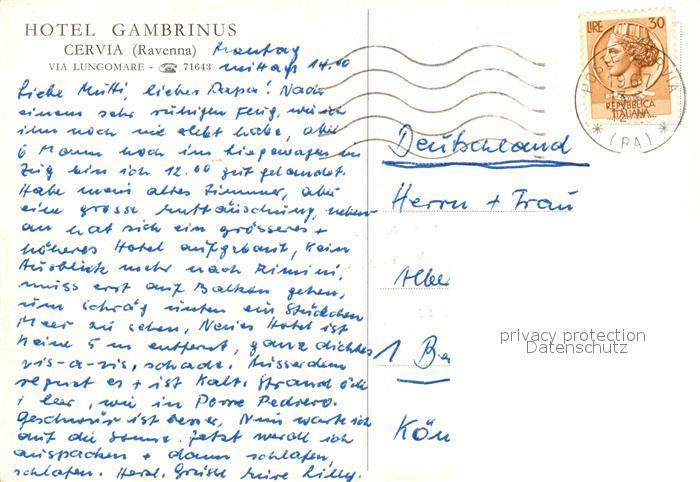 HOTEL GAMBRINUS
CERVIA (Ravenna)
VIA LUNGOMARE - ☎ 71643
Montag
mittag 14.00
Liebe Mutti, lieber Papa! Nach
einem sehr ruhigen Flug, wie ich
ihn noch nie erlebt habe, aber
6 Mann hoch im Liegewagen im
Zug bin ich 12.00 gut gelandet.
Habe mein altes Zimmer, aber
eine grosse Enttäuschung, neben-
an hat sich ein grösseres +
höheres Hotel aufgebaut, kein
Ausblick mehr nach Rimini,
muss erst auf Balkon gehen,
um schräg unten ein Stückchen
Meer zu sehen, Neues Hotel ist
keine 5 m entfernt, ganz dichtes
vis-a-vis, schade. Ausserdem
regnet es + ist kalt. Strand öde
+ leer, wie in Pedrero.
Geschwür ist besser, Nun warte ich
auf die Sonne. Jetzt werde ich
auspacken + dann schlafen,
schlafen. Herzl. Grüsse Eure Lilly.
LIRE 30
REPVBBLICA
ITALIANA
CERVIA
1967
* (RA) *
Deutschland
Herrn + Frau
Albe
1 Be
Kön
privacy protection
Datenschutz